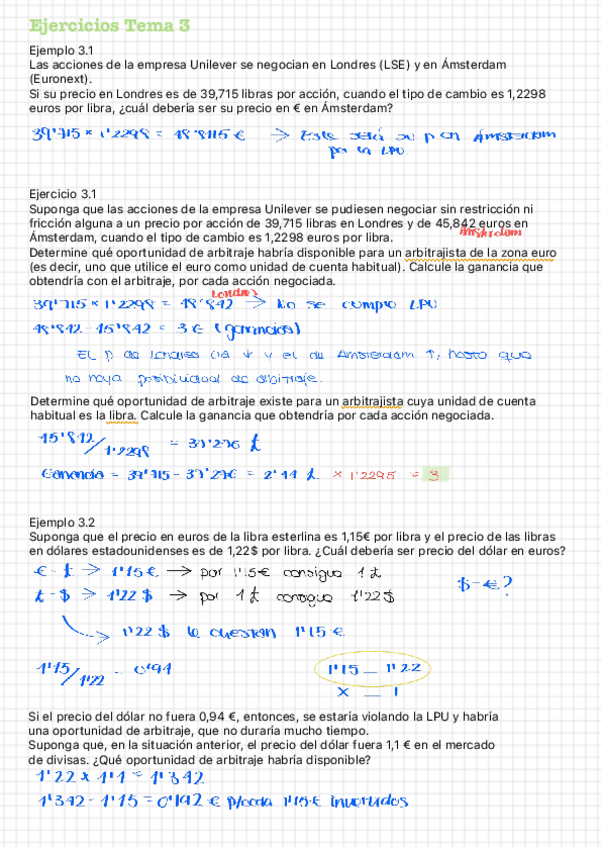 Ejercicios Tema 3
Ejemplo 3.1
Las acciones de la empresa Unilever se negocian en Londres (LSE) y en Ámsterdam
(Euronext).
Si su precio en Londres es de 39,715 libras por acción, cuando el tipo de cambio es 1,2298
euros por libra, ¿cuál debería ser su precio en € en Ámsterdam?
39'715 × 1'2298 = 48'8415 € → Este será su p en Ámsterdam
por la LPU.
Ejercicio 3.1
Suponga que las acciones de la empresa Unilever se pudiesen negociar sin restricción ni
fricción alguna a un precio por acción de 39,715 libras en Londres y de 45,842 euros en
Ámsterdam, cuando el tipo de cambio es 1,2298 euros por libra.
Amsterdam
Determine qué oportunidad de arbitraje habría disponible para un arbitrajista de la zona euro
(es decir, uno que utilice el euro como unidad de cuenta habitual). Calcule la ganancia que
obtendría con el arbitraje, por cada acción negociada.
Londres
39'715 × 1'2298 = 48'842 → No se cumple LPU
48'842 - 45'842 = 3 € (ganancias)
El p de Londres irá ↓ y el de Amsterdam ↑, hasta que
no haya posibilidad de arbitraje.
Determine qué oportunidad de arbitraje existe para un arbitrajista cuya unidad de cuenta
habitual es la libra. Calcule la ganancia que obtendría por cada acción negociada.
45'842/1'2298 = 37'276 £
Ganancia = 39'715 - 37'276 = 2'44 £ × 1'2298 = 3
Ejemplo 3.2
Suponga que el precio en euros de la libra esterlina es 1,15€ por libra y el precio de las libras
en dólares estadounidenses es de 1,22$ por libra. ¿Cuál debería ser precio del dólar en euros?
€ - £ → 1'15 € → por 1'15€ consigue 1 £
£ - $ → 1'22 $ → por 1 £ consigue 1'22 $
$-€?
→ 1'22 $ le cuestan 1'15 €
1'15/1'22 = 0'94
1'15 — 1'22
x — 1
Si el precio del dólar no fuera 0,94 €, entonces, se estaría violando la LPU y habría
una oportunidad de arbitraje, que no duraría mucho tiempo.
Suponga que, en la situación anterior, el precio del dólar fuera 1,1 € en el mercado
de divisas. ¿Qué oportunidad de arbitraje habría disponible?
1'22 × 1'1 = 1'342
1'342 - 1'15 = 0'192 € p/cada 1'15 € invertidos